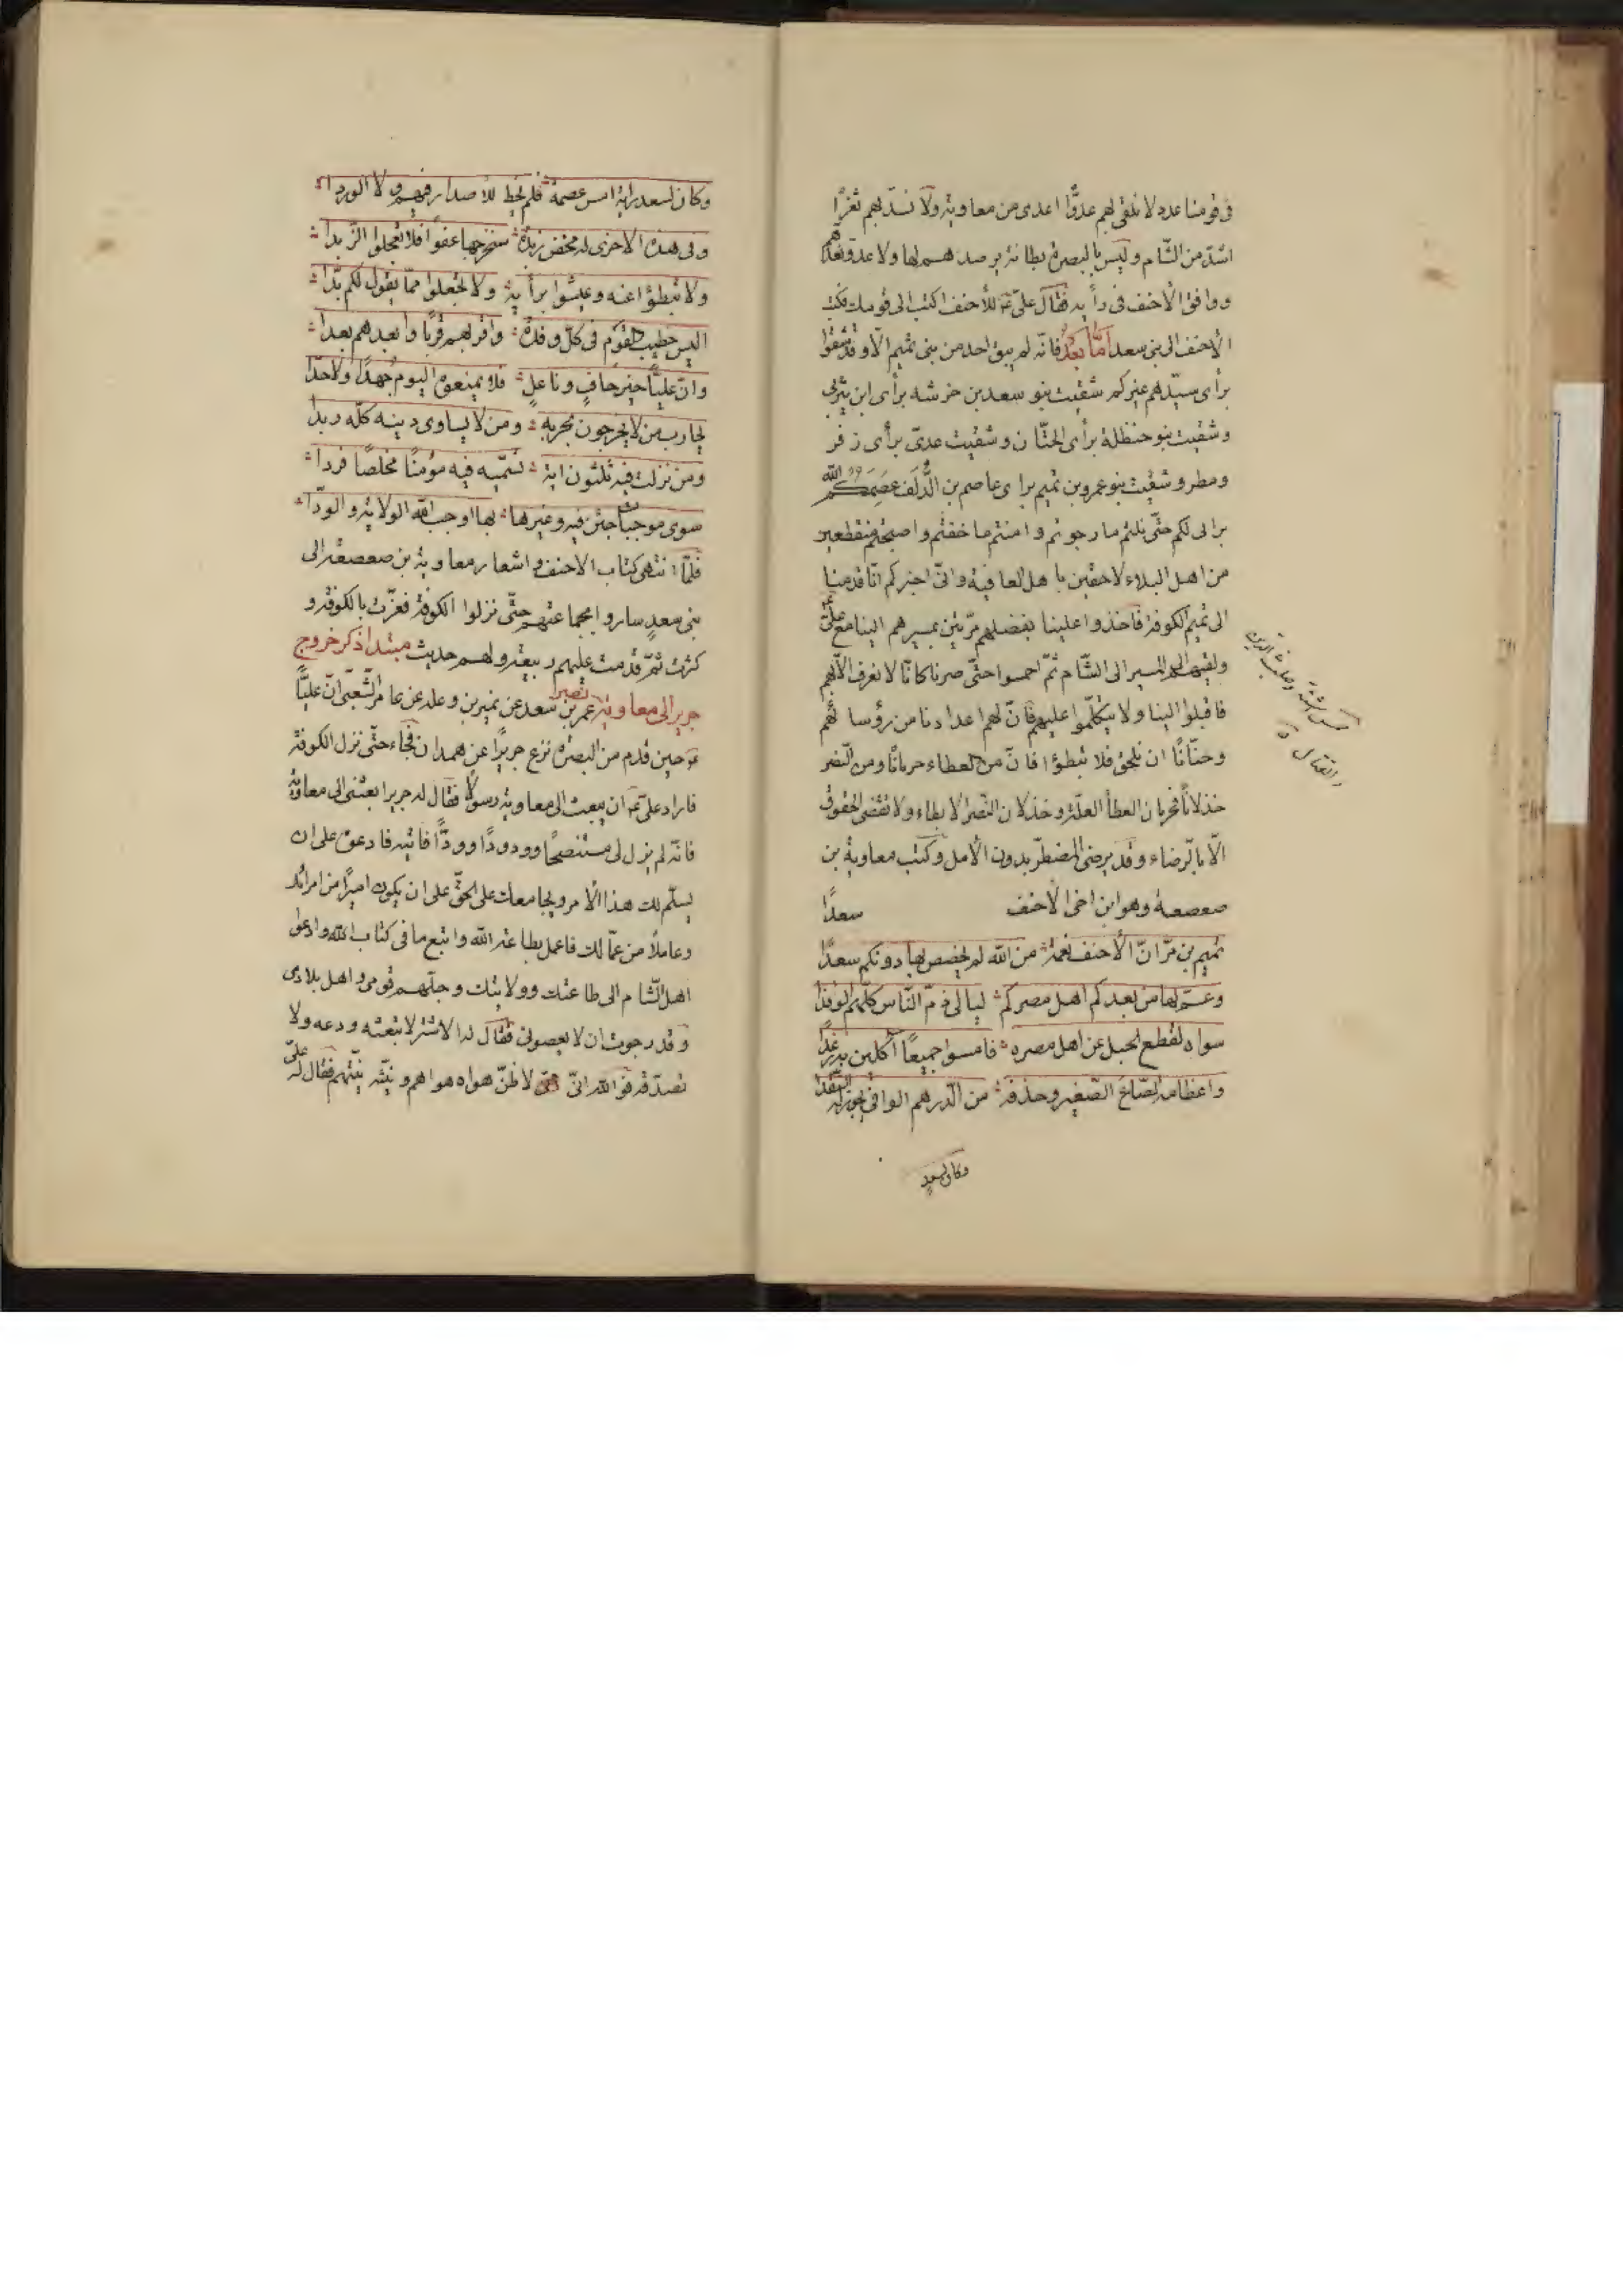 فى قومنا عدد لا نلقى لهم عدوّا اعدى من معاوية ولا نسدّ بهم ثغرًا
اشدّ من الشّام وليس بالبصرة بطانة نرصدهم لها ولا عدوّ نعدّهم
ووافق الأحنف فى رأيه فقال علىّ عم للأحنف اكتب الى قومك فكتب
الأحنف الى بنى سعد امّا بعدُ فانّه لم يبق احد من بنى تميم الّا وقد شقوا
برأى سيّدهم غيركم شقيت بنو سعد بن خرشه برأى ابن يثربى
وشقيت بنو حنظلة برأى الحتّان وشقيت عدىّ برأى زفر
ومطر وشقيت بنو عمرو بن تميم براى عاصم بن الدُّلَف عصَمَكم اللّه
برائى لكم حتّى نلتم ما رجوتم وامنتم ما خفتم واصبحتم منقطعين
من اهل البلاء لاحقين باهل العافية وانّى اخبركم انّا قدمنا
الى تميم الكوفة فاخذوا علينا بفضلهم مرّتين بمسيرهم الينا مع علىّ
ولقيهم المسير الى الشّام ثمّ احمسوا حتّى صرنا كانّا لا نعرف الّا بهم
فاقبلوا الينا ولا يتكلّموا عليهم فانّ لهم اعدادنا من رؤسائهم
وحنّانًا ان نلحق فلا تبطؤا فانّ من العطاء حرمانًا ومن النّصر
خذلانًا فحرمان العطأ العلّة وخذلان النّصر الابطاء ولا تقضى الحقوق
الّا بالرّضاء وقد يرضى المضطرّ بدون الأمل وكتب معاوية بن
صعصعة وهو ابن اخى الاحنف سعدًا
تميم بن مرّ انّ الأحنف نعمة من اللّه لم يخصص بها دونكم سعدًا
وعمّ بها من بعدكم اهل مصركم ليالى ذمّ النّاس كلّهم الوفدا
سواه لقطع الحبل عن اهل مصره فامسوا جميعًا آكلين به رغدًا
واعظامه الصّاع الصّغير وحذفه من الدّرهم الوافى يجوز له النّقدا
وكان لسعدٍ
وكان لسعد رايه امس عصمة فلم يخط للأصدار فيهم ولا الوردا
وفى هذه الاخرى له مخض زبدة سنخرجها عفوا فلا تعجلوا الزّبدا
ولا تبطؤا عنه وعيشوا برأيه ولا تجعلوا ممّا يقول لكم بدّا
اليس خطيب القوم فى كلّ وفدة واقربهم قربًا وابعدهم بعدا
وانّ عليًّا خير حافٍ وناعلٍ فلا تمنعوه اليوم جُهدًا ولا جدّا
يحارب من لا يحرجون بحربه ومن لا يساوى دينه كلّه ردّا
ومن نزلت فيه ثلثون اية تسمّيه فيه مؤمنًا مخلصًا فردا
سوى موجبات جئن فيه وغيرها بها اوجب اللّه الولاية والودّا
فلمّا انتهى كتاب الاحنف واشعار معاوية بن صعصعة الى
بنى سعدٍ ساروا بجماعتهم حتّى نزلوا الكوفة فعزّت بالكوفة و
كثرت ثمّ قدمت عليهم ربيعة ولهم حديث مبتدا ذكر خروج
جرير الى معاوية نصير عمر بن سعد عن نمير بن وعله عن عامر الشّعبى انّ عليًّا
عم حين قدم من البصرة نزع جريرًا عن همدان فجاء حتّى نزل الكوفة
فاراد علىّ عم ان يبعث الى معاوية رسولًا فقال له جرير ابعثنى الى معاوية
فانّه لم يزل لى مستنصحًا وودودًا وودًّا فاتيه فادعوه على ان
يسلّم لك هذا الأمر ويجامعك على الحقّ على ان يكون اميرًا من امرائك
وعاملًا من عمّالك فاعمل بطاعة اللّه واتبع ما فى كتاب اللّه وادعو
اهل الشّام الى طاعتك وولايتك وجلّهم قومى واهل بلادى
وقد رجوت ان لا يعصونى فقال له الاشتر لا تبعثه ودعه ولا
تصدّقه فو اللّه انّى لأظنّ هواه هواهم ونيّته نيّتهم فقال له علىّ